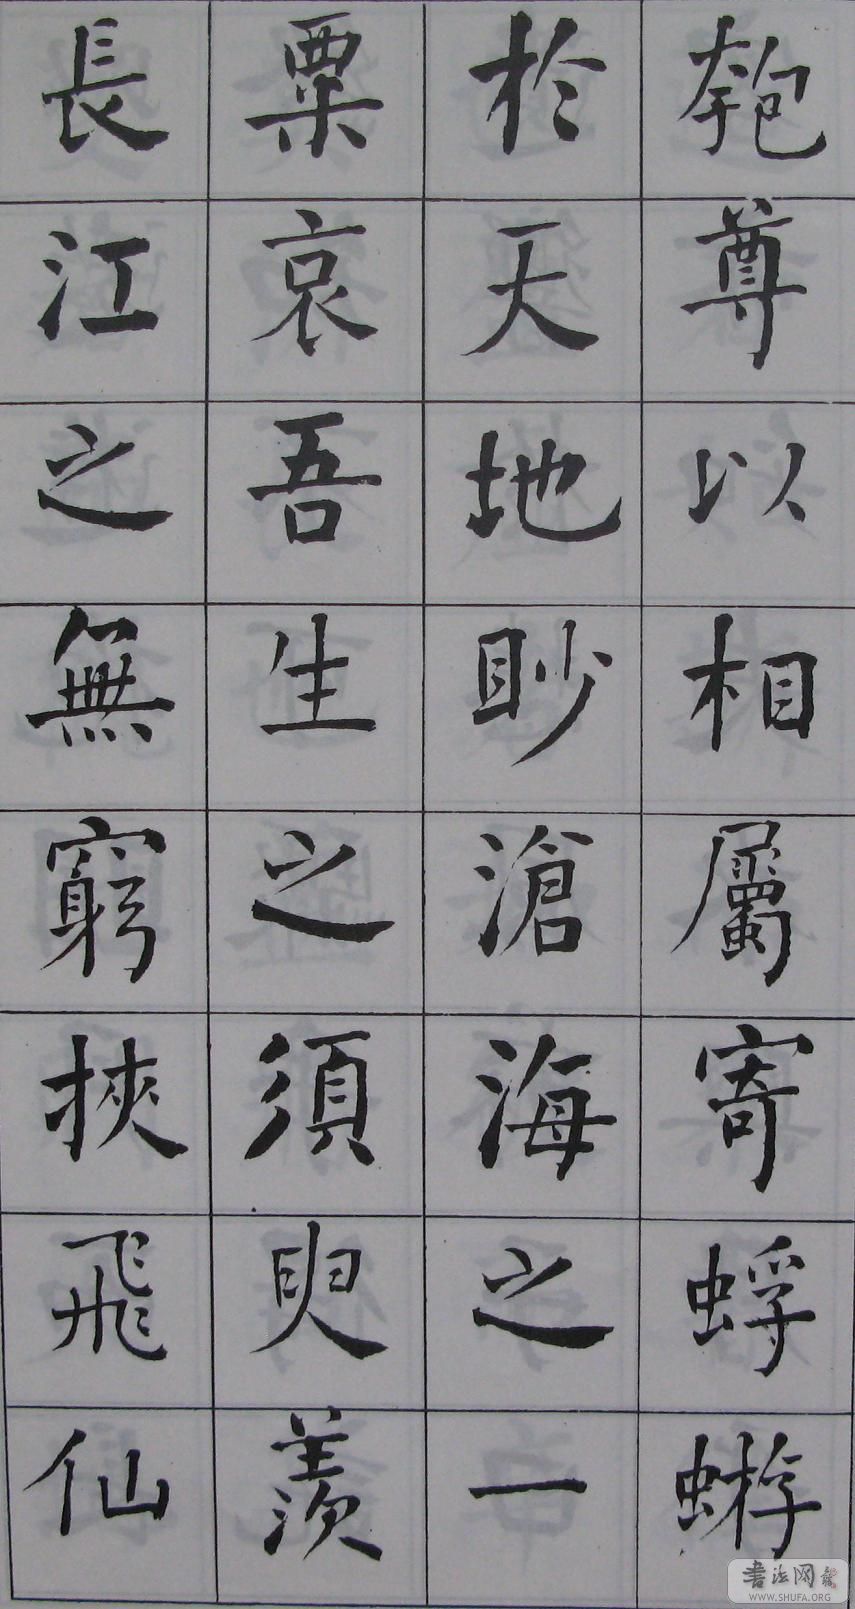 匏尊以相屬寄蜉蝣
於天地眇滄海之一
粟哀吾生之須臾羨
長江之無窮挾飛仙
書法网
WWW.SHUFA.ORG